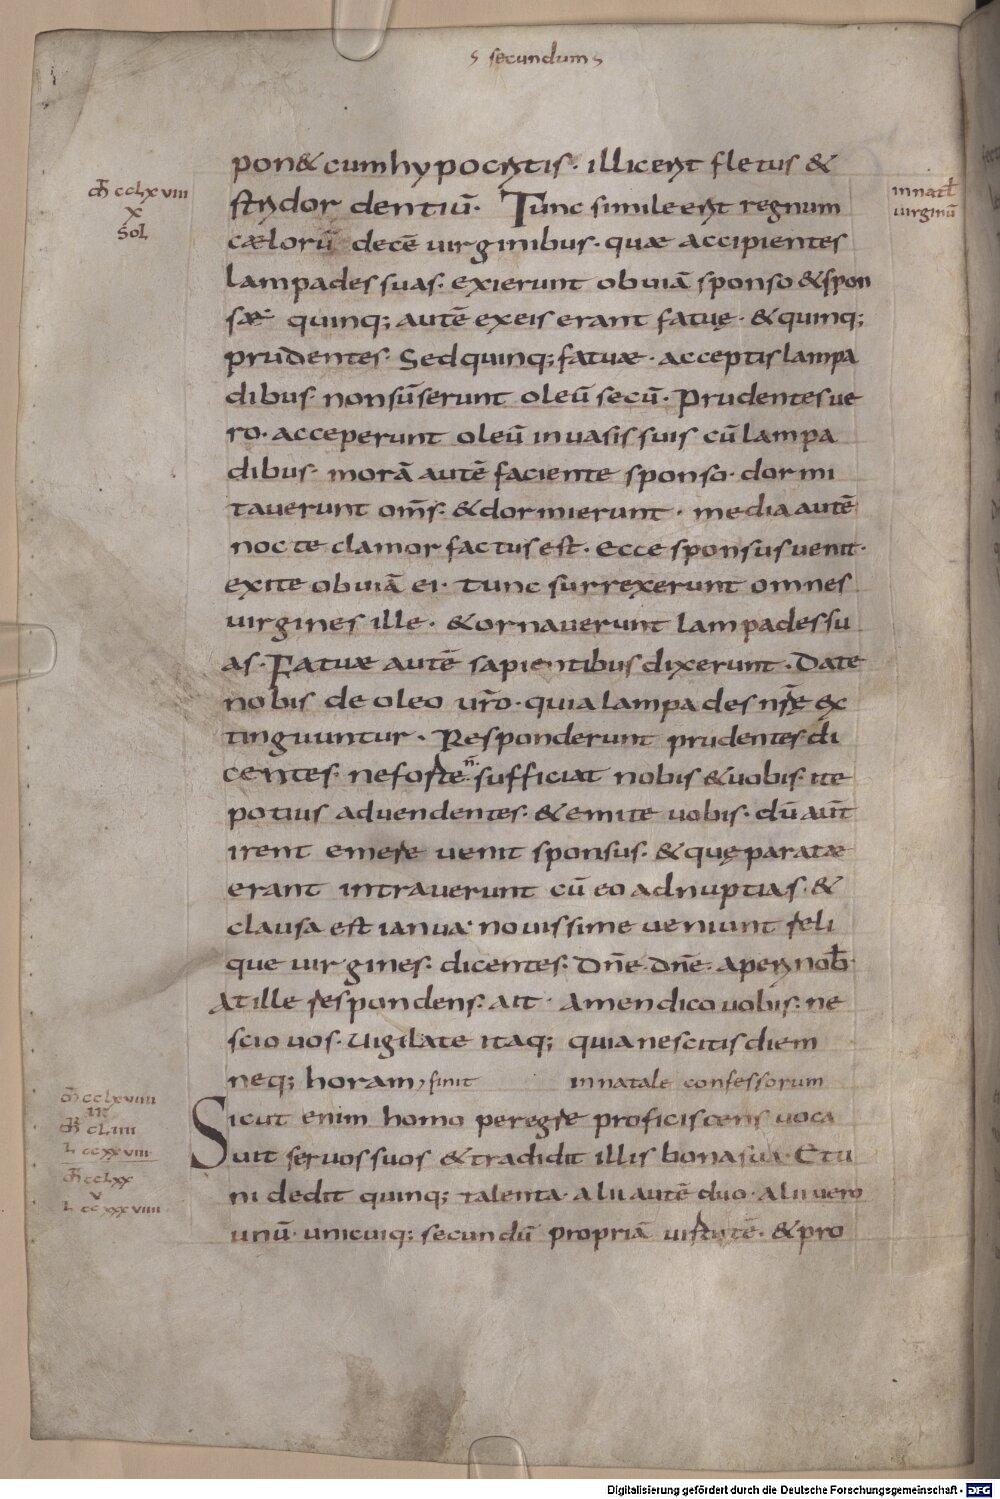 secundum
pon& cum hypocritis · illic erit fletus &
stridor dentiū · Tunc simile erit regnum
cælorū decē virginibus · quæ accipientes
lampades suas · exierunt obviā sponso & spon
sæ · quinq; autē ex eis erant fatuę · & quinq;
prudentes · Sed quinq; fatuæ · acceptis lampa
dibus · non sūserunt oleū secū · Prudentes ue
ro · acceperunt oleū in uasis suis cū lampa
dibus · morā autē faciente sponso · dormi
taverunt om̄s · & dormierunt · media autē
nocte clamor factus est · Ecce sponsus uenit ·
exite obviā ei · Tunc surrexerunt omnes
uirgines ille · & ornauerunt lampades su
as · Fatuæ autē sapientibus dixerunt · Date
nobis de oleo ur̄o · quia lampades nr̄ę ex
tinguuntur · Responderunt prudentes di
centes · ne forte n̄ sufficiat nobis & uobis · ite
potius ad uendentes · & emite uobis · dū aut̄
irent emere uenit sponsus · & quę paratæ
erant intrauerunt cū eo ad nuptias · &
clausa est ianua · nouissime ueniunt reli
que uirgines · dicentes · Dn̄e · dn̄e · aperi nob̄
At ille respondens · ait · Amen dico uobis · ne
scio uos · Uigilate itaq; quia nescitis diem
neq; horam, finit in natale confessorum
Sicut enim homo peregre proficiscens uoca
uit seruos suos & tradidit illis bona sua · Et u
ni dedit quinq; talenta · alii autē duo · alii uero
unū · unicuiq; secundū propriā uirtutē · & pro
cclxviii
x
Sol
in natl̄
uirginū
cclxviiii
cliii
l ccxxviii
cclxx
v
l ccxxxviiii
Digitalisierung gefördert durch die Deutsche Forschungsgemeinschaft - DFG